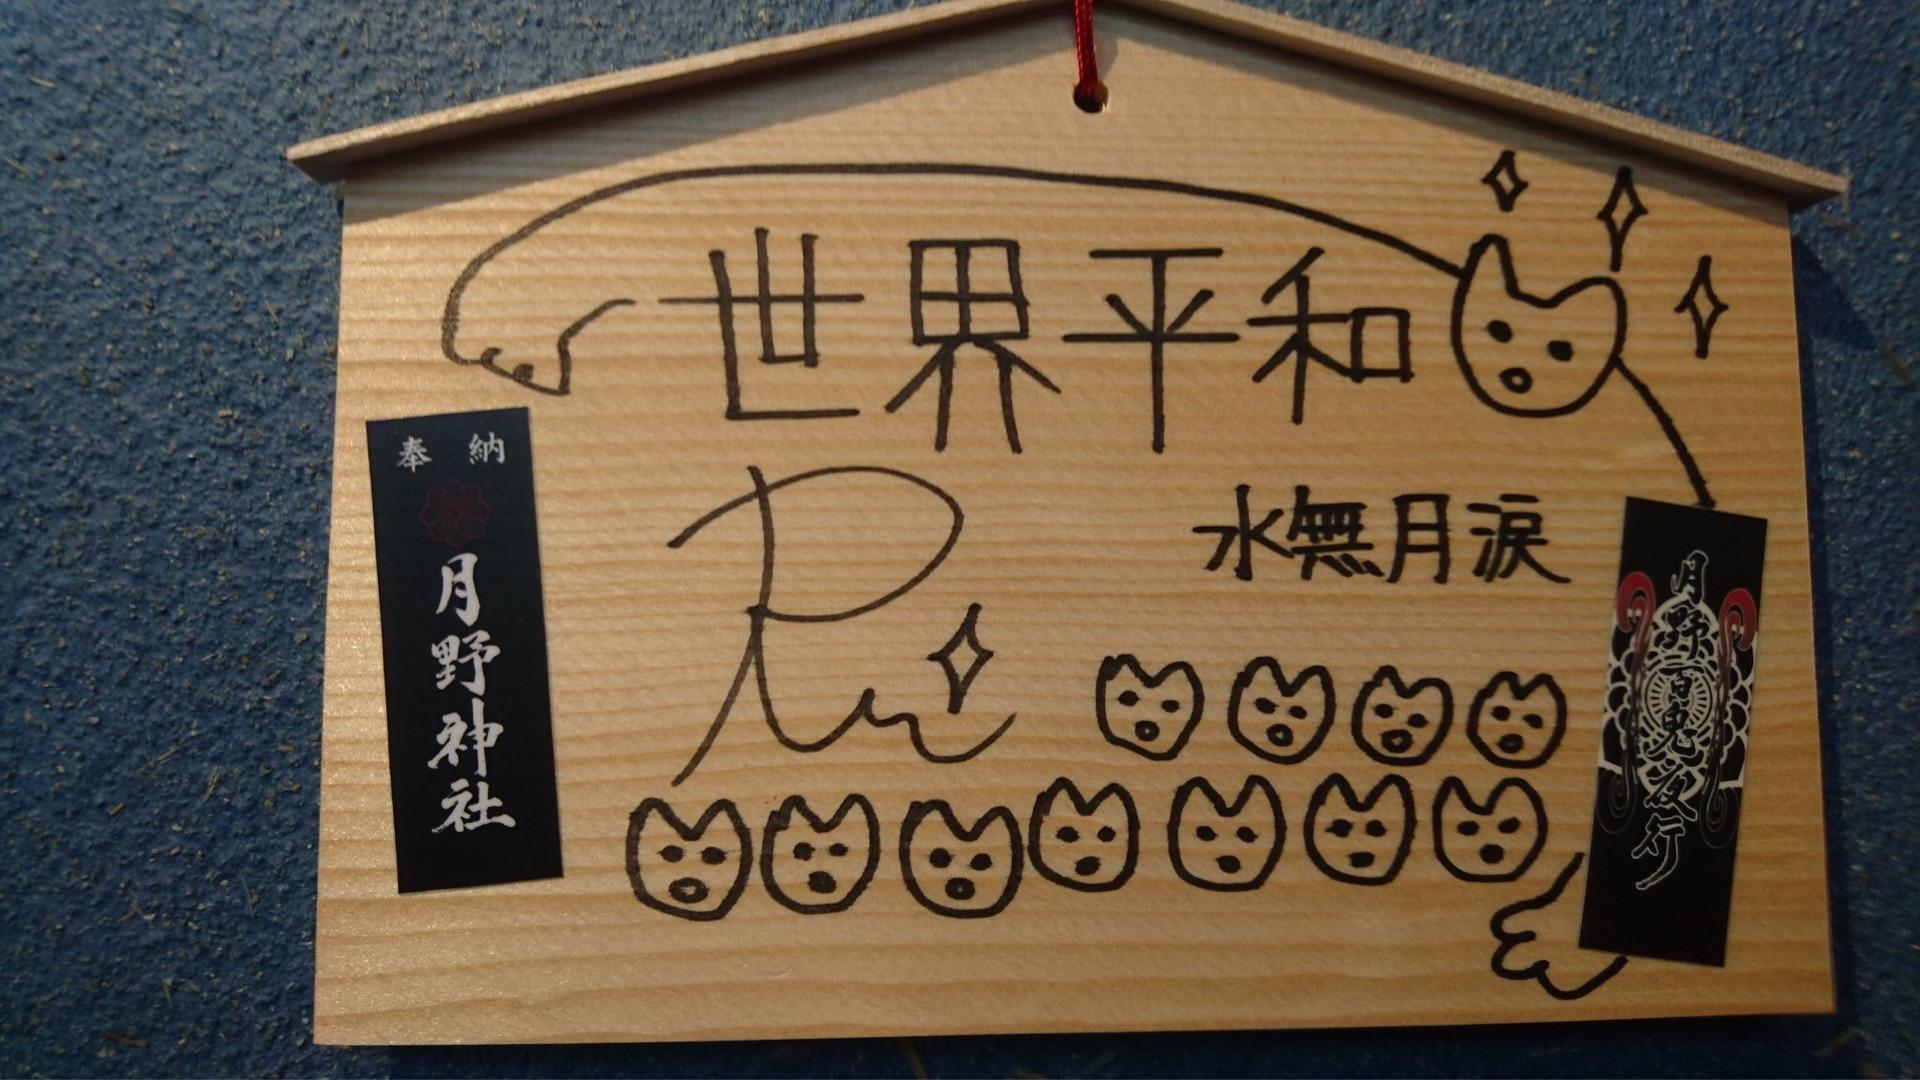 世界平和
水無月涙
奉納
月野神社
月野百鬼夜行